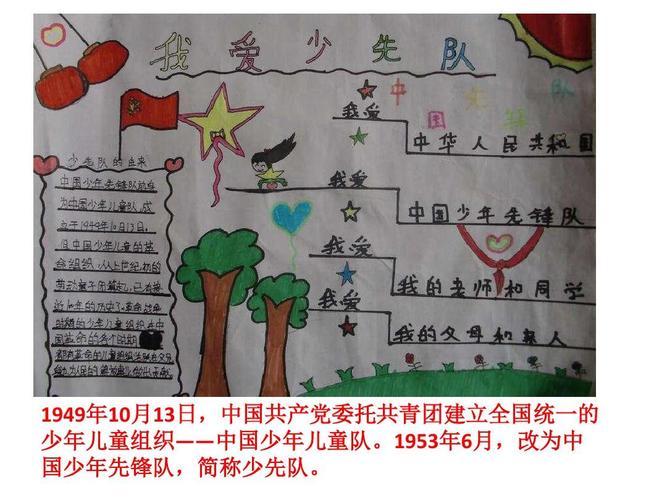 我爱少先队
中国先锋队
我爱
中华人民共和国
我爱
中国少年先锋队
我爱
我的老师和同学
我爱
我的父母和亲人
少先队的由来
中国少年先锋队前身
为中国少年儿童队,成
立于1949年10月13日,
但中国少年儿童的革
命组织,从上世纪初的
劳动童子团算起,已有接
近
年的历史了。革命战争
时期的少年儿童组织在中
国革命的各个时期
都有革命的儿童组织
1949年10月13日，中国共产党委托共青团建立全国统一的
少年儿童组织——中国少年儿童队。1953年6月，改为中
国少年先锋队，简称少先队。